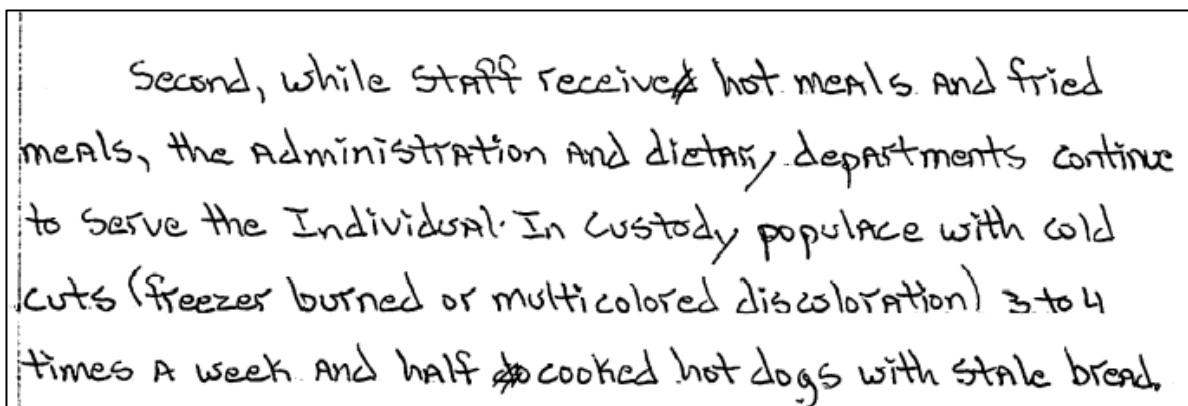 Second, while staff receive hot meals and fried
meals, the Administration and dietary departments continue
to serve the Individual. In Custody populace with cold
cuts (freezer burned or multicolored discoloration) 3 to 4
times A week and half cooked hot dogs with stale bread.